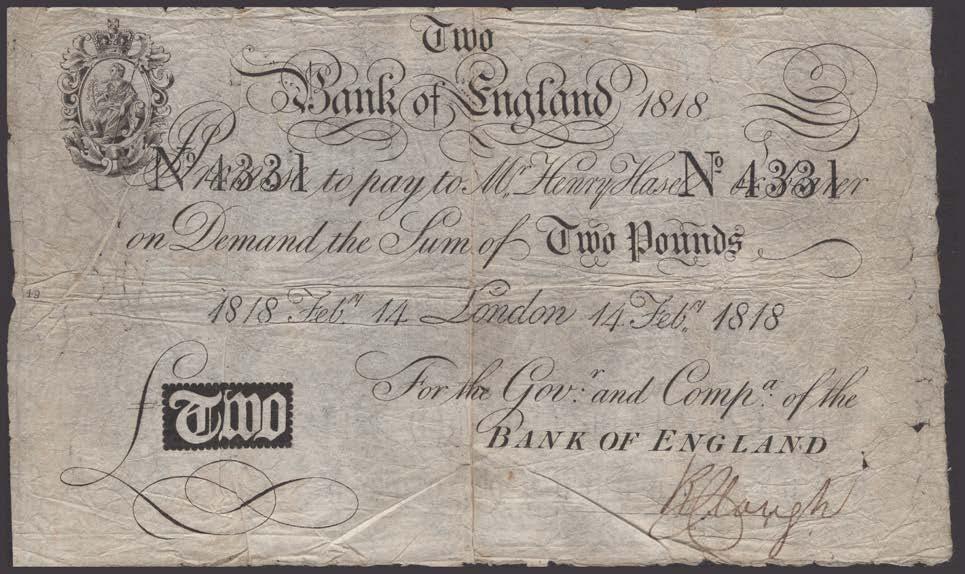 Two
Bank of England 1818
Nº 4331 Nº 4331
I Promise to pay to Mr. Henry Hase or Bearer
on Demand the Sum of Two Pounds
19
1818 Feby. 14 London 14 Feby. 1818
For the Govr. and Compa. of the
£ Two
BANK OF ENGLAND